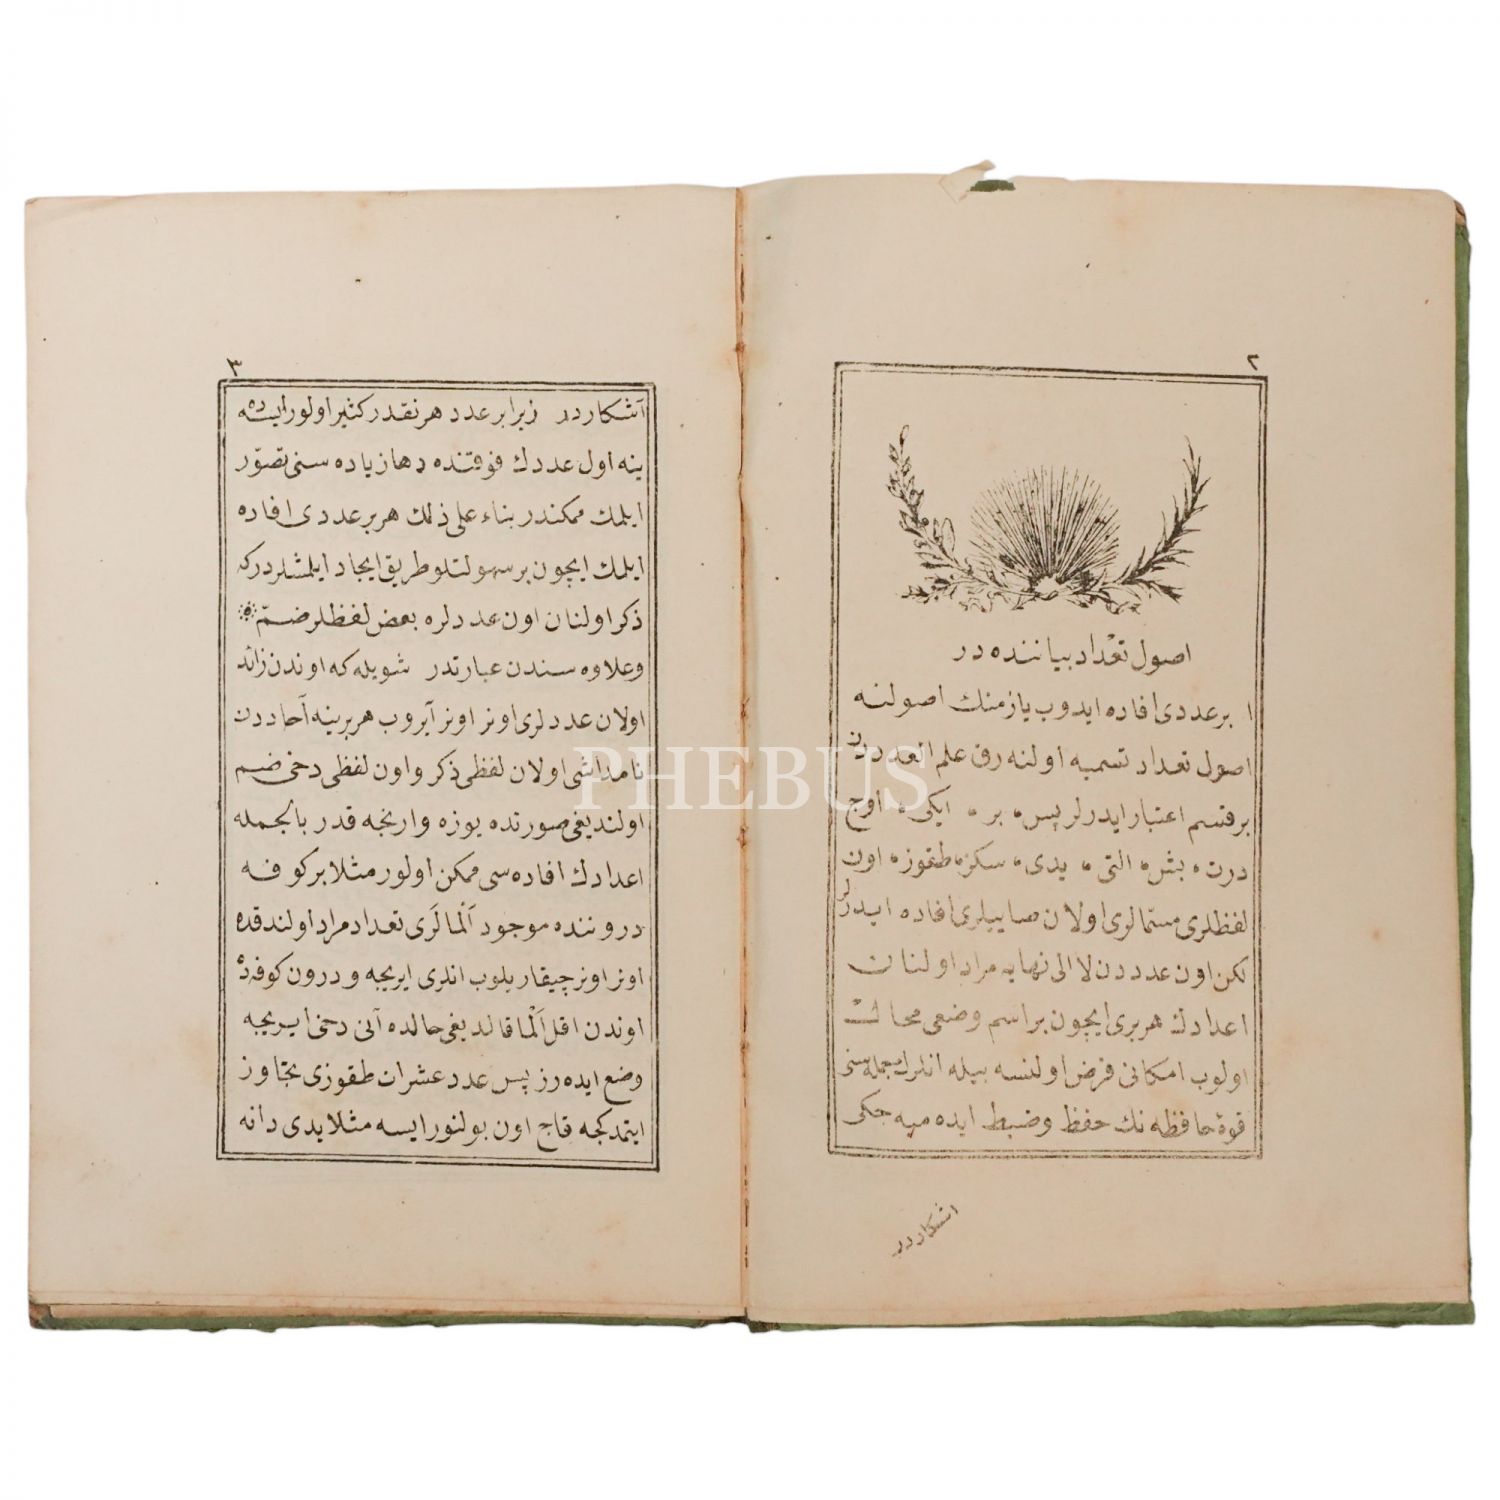 ٢
اصول تعداد بیاننده در
١ بر عددی افاده ایدوب یازمنك اصولنه
اصول تعداد تسمیه اولنه رق علم العددن
بر قسم اعتبار ایدرلر پس ٠ بر ٠ ایکی ٠ اوچ
درت ٠ بش ٠ التی ٠ یدی ٠ سکز ٠ طقوز ٠ اون
لفظلری مستمالری اولان صاییلری افاده ایدر
لکن اون عدددن لا الی نهایه مراد اولنان
اعدادك هربری ایچون بر اسم وضعی محال
اولوب امکانی فرض اولنسه بیله انلرك جمله سنی
قوۀ حافظه نك حفظ وضبط ایده میه جکی
اشکاردر
٣
آشکاردر زیرا بر عدد هر نقدر کثیر اولور ایسه ده
ینه اول عددك فوقنده دها زیاده سنی تصوّر
ایلمك ممکندر بناء علی ذلك هر بر عددی افاده
ایلمك ایچون بر سهولتلو طریق ایجاد ایلمشلردرکه
ذکر اولنان اون عددلره بعض لفظلر ضمّ
وعلاوه سندن عبارتدر شویله که اوندن زائد
اولان عددلری اونر اونر آیروب هر برینه آحاددن
نامداشی اولان لفظی ذکر واون لفظی دخی ضم
اولندیغی صورتده یوزه وارنجه قدر بالجمله
اعدادك افاده سی ممکن اولور مثلا بر کوفه
دروننده موجود اَلْمالَری تعداد مراد اولندقده
اونر اونر چیقاریلوب انلری ایریجه ودرون کوفه ده
اوندن اقل اَلْما قالدیغی حالده آنی دخی ایریجه
وضع ایده رز پس عدد عشرات طقوزی تجاوز
ایتمدکجه قاچ اون بولنور ایسه مثلا یدی دانه
PHEBUS